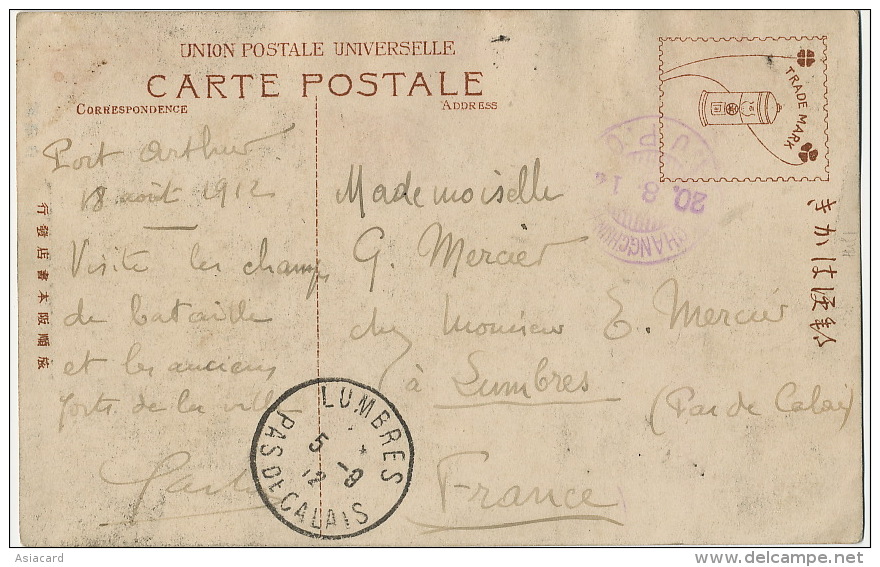 UNION POSTALE UNIVERSELLE
CARTE POSTALE
CORRESPONDENCE
ADDRESS
TRADE MARK
Port Arthur
18 août 1912
Visité les champs
de bataille
et les anciens
forts de la ville
Mademoiselle
G. Mercier
chez Monsieur E. Mercier
à Lumbres
(Pas de Calais)
France
CHANGCHUN
20.8.12
I.J.P.O.
LUMBRES
5 -9
12
PAS DE CALAIS
きかは便郵
行發店書本阪順旅
Asiacard
www.delcampe.net